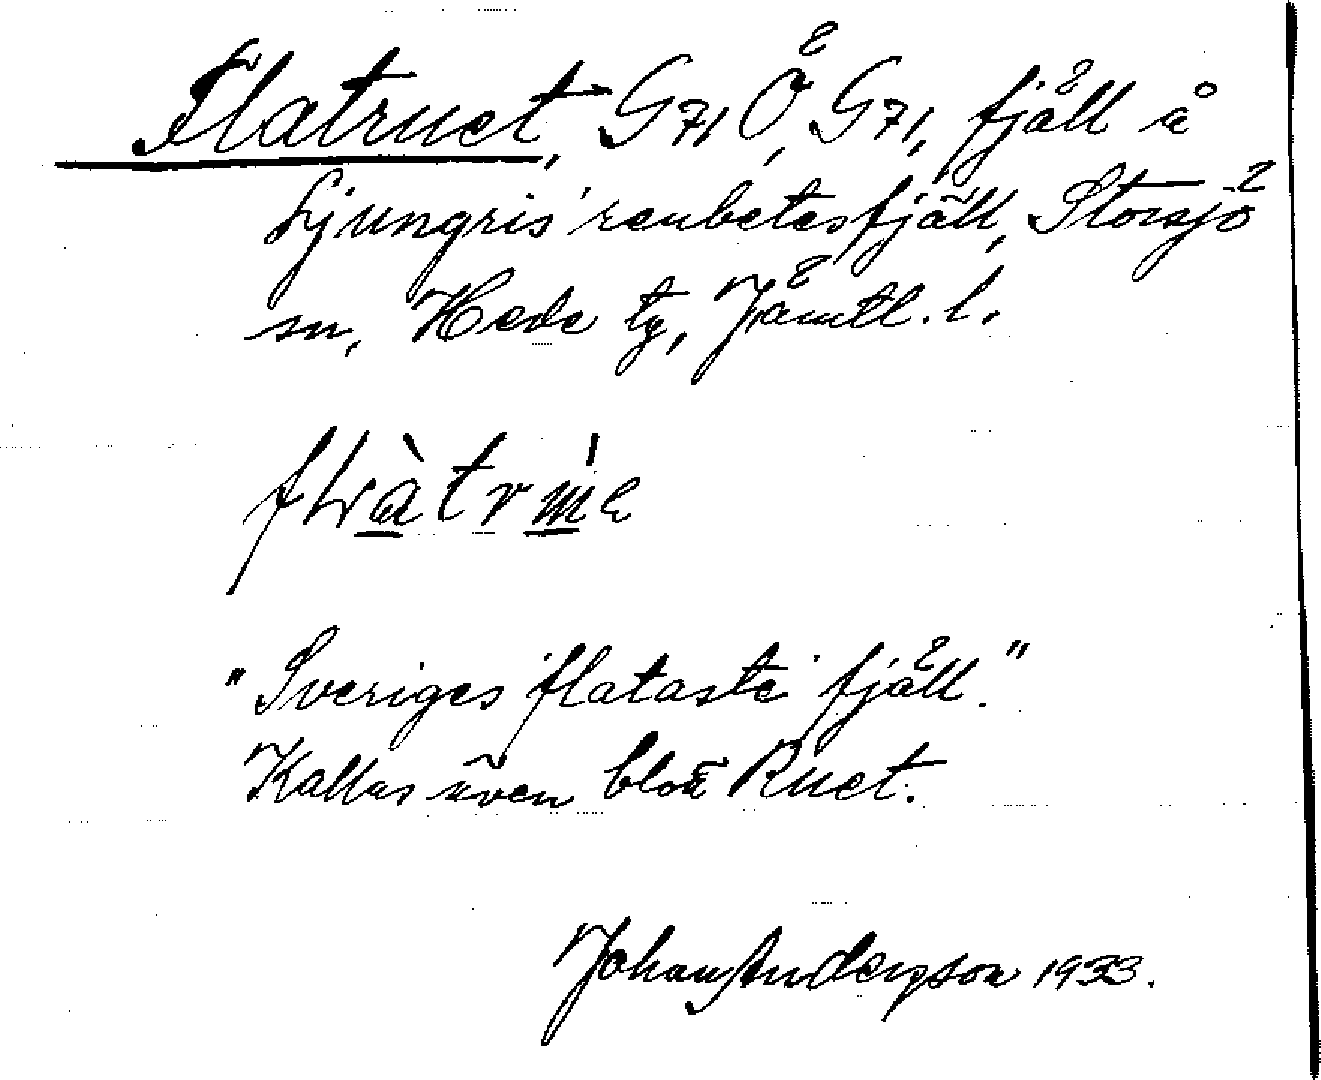 Flatruet, G71 Ö, G71, fjäll å
Ljungris renbetesfjäll, Storsjö
sn, Hede tg, Jämtl. l.
"Sveriges flataste fjäll."
Kallas även blott Ruet.
Johan Anderzson 1933.